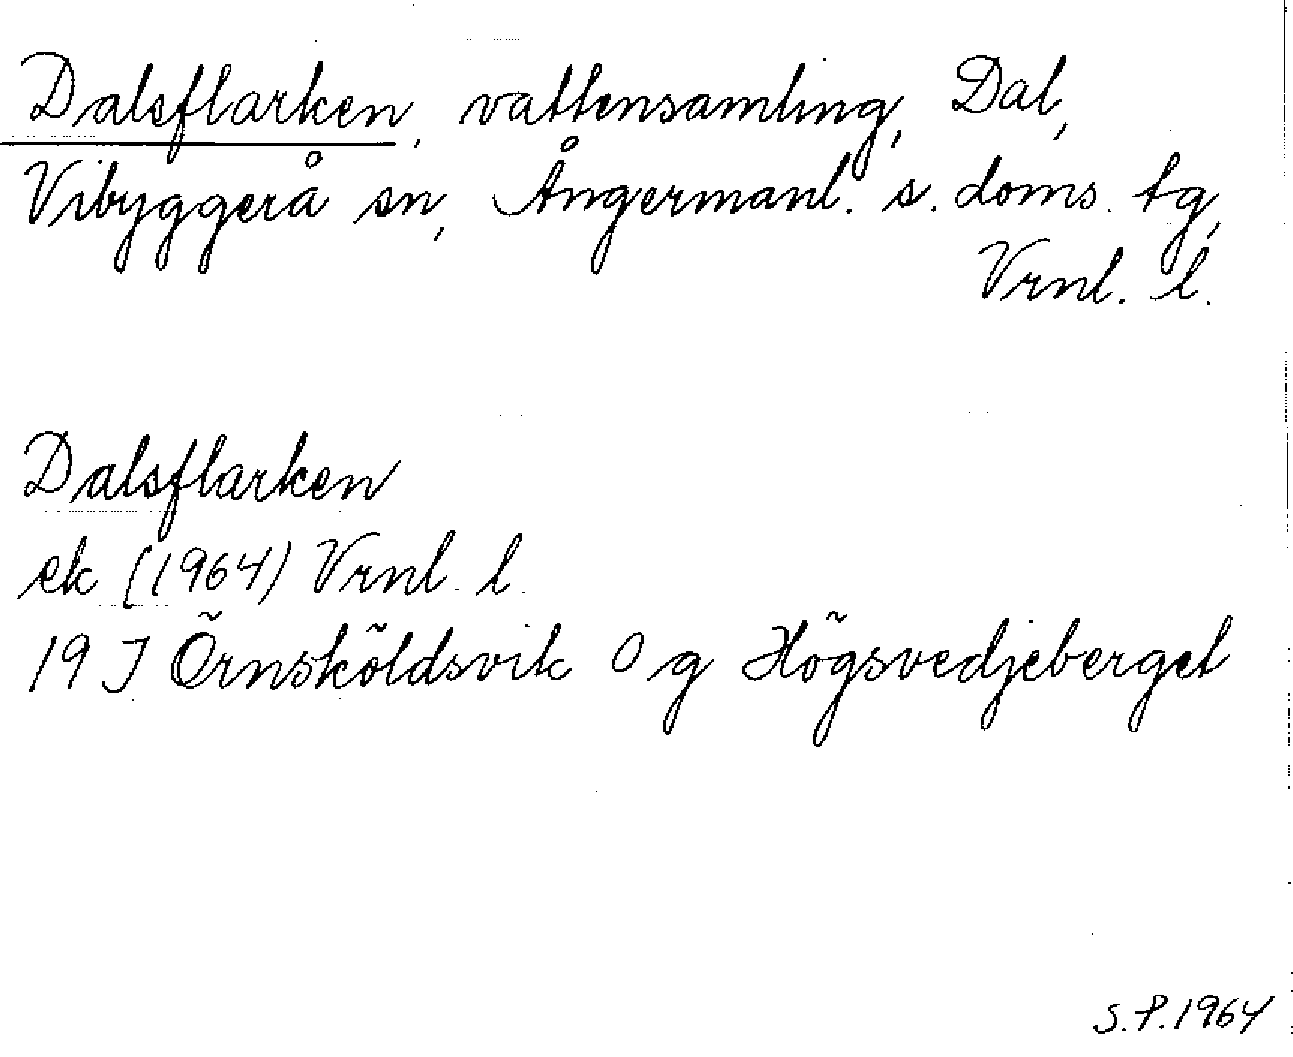 Dalsflarken, vattensamling, Dal,
Vibyggerå sn, Ångermanl. s. doms. tg,
Vrnl. l.
Dalsflarken
ek (1964) Vrnl. l.
19 J Örnsköldsvik 0 g Högsvedjeberget
S.P. 1964